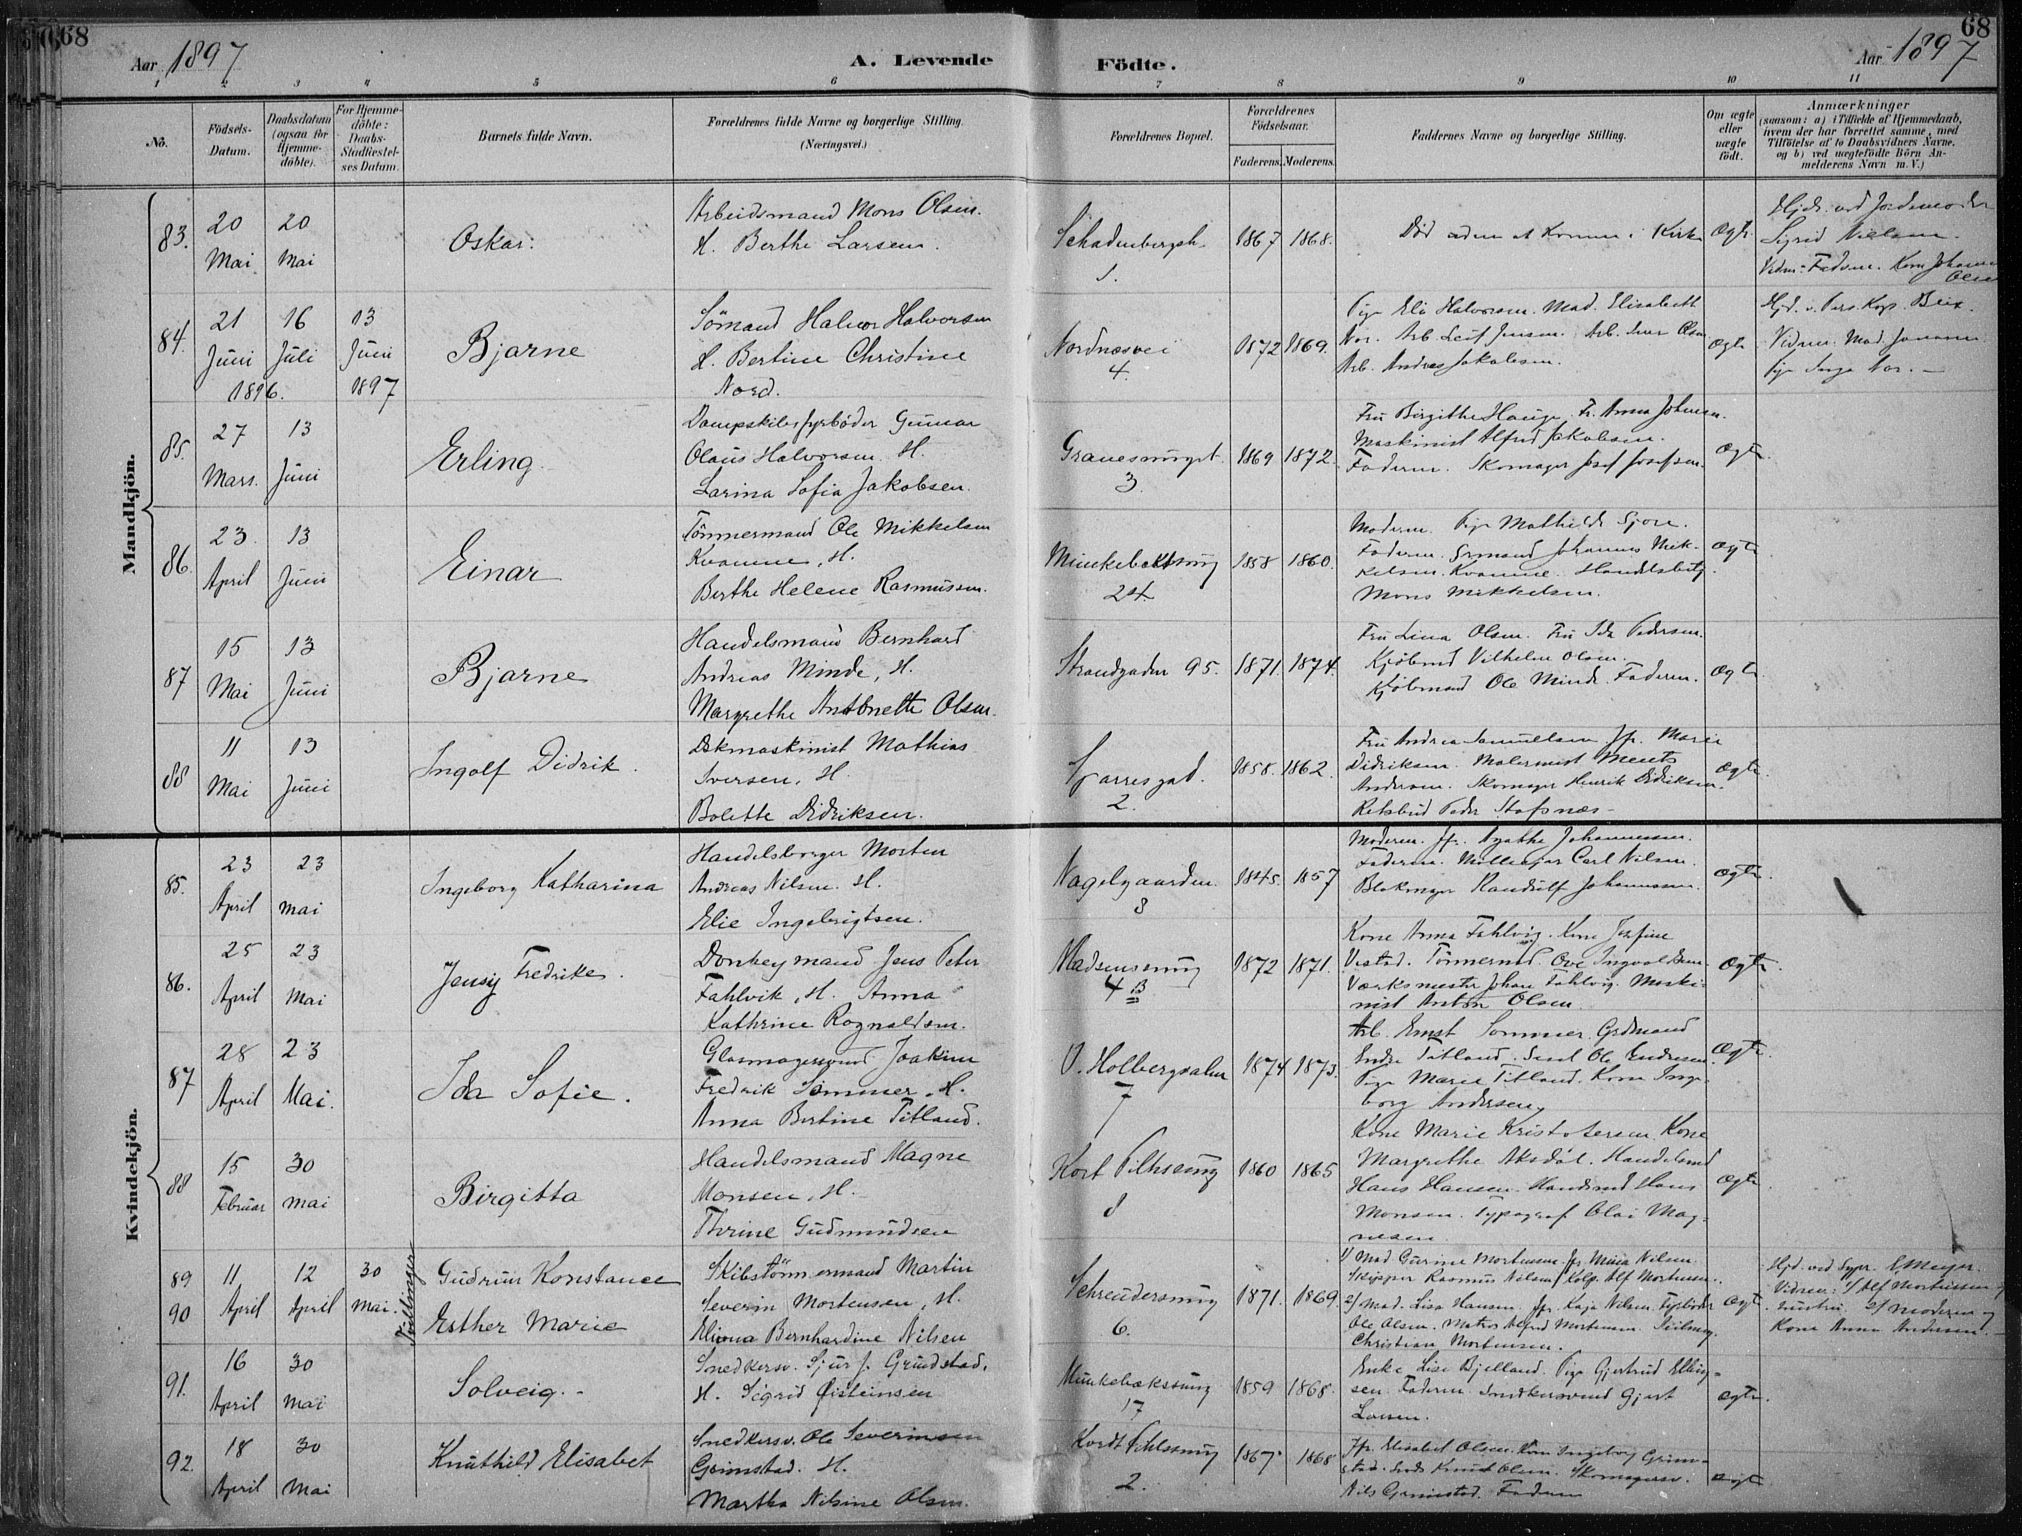 68
68
Aar 1897
A. Levende
Födte.
Aar 1897
1 2 3 4 5 6 7 8 9 10 11
No.
Födsels-
Datum.
Daabsdatum
(ogsaa för
Hjemme-
döbte).
For Hjemme-
döbte:
Daabs-
Stadfæstel-
ses Datum.
Barnets fulde Navn.
Forældrenes fulde Navne og borgerlige Stilling.
(Næringsvei.)
Forældrenes Bopæl.
Forældrenes
Födselsaar.
Faderens. Moderens.
Faddernes Navne og borgerlige Stilling.
Om ægte
eller
uægte
födt.
Anmærkninger
(saasom: a) i Tilfælde af Hjemmedaab,
hvem der har forrettet samme, med
Tilföielse af to Daabsvidners Navne,
og b) ved uægtefödte Börn An-
melderens Navn m. V.)
Mandkjön.
83. 20 Mai
20 Mai
Oskar.
Arbeidsmand Mons Olsen.
H. Berthe Larsen.
1.
1867 1868.
Död uden at komme i Kirke
Ægte
Hjdb. ved Jordemoder
Sigrid Nielsen.
84. 21 Juni 1896.
16 Juli
13 Juni 1897
Bjarne
Sömand Halvor Halvorsen
H. Bertine Christine
Nord.
Nordnæsvei
4.
1872 1869.
Pige Eli Halvorsen. Mad. Elisabeth
Nor. Arb. Leif Jensen. Arb. Iver Olsen
Arb. Andreas Jakobsen.
ægte
Hjd. v. Pers. Kap. Brix.
Pige Inga Nor. –
85. 27 Mars.
13 Juni
Erling.
Dampskibsfyrböder Gunnar
Olaus Halvorsen. H.
Larina Sofia Jakobsen.
3.
1869 1872.
Fru Birgithe Hauge. Fr. Anna Johnsen.
Maskinist Alfred Jakobsen.
Faderen. Skomager Josef Josefsen.
ægte.
86. 23. April
13 Juni
Einar
Tömmermand Ole Mikkelsen
Kvamme, H.
Berthe Helene Rasmussen.
Munkebæksmug
24.
1858 1860.
Moderen. Pige Mathilde
Faderen. Johannes Mik-
kelsen. Kvamme. Handelsbetj.
Mons Mikkelsen.
ægte
87 15 Mai
13 Juni
Bjarne
Handelsmand Bernhard
Andreas Minde, H.
Margrethe Antonette Olsen.
Strandgaden 95.
1871. 1874.
Fru Lina Olsen. Fru Ida Pedersen.
Kjöbmd Vilhelm Olsen.
Kjöbmand Ole Minde. Faderen.
ægte.
88 11 Mai
13 Juni
Ingolf Didrik.
Dskmaskinist Mathias
Iversen, H.
Bolette Didriksen.
Sparresgad.
2.
1858. 1862.
Fru Andrea Samuelsen. Jfr. Marie
Didriksen. Malermest Ments
Andersen. Skomager Henrik Didriksen.
Retsbud Peder Stafsnæs –
ægte.
Kvindekjön.
85. 23 April
23 Mai
Ingeborg Katharina
Handelsborger Morten
Andreas Nilsen. H.
Elie Ingebrigtsen.
Nagelgaarden
8
1845. 1857
Moderen. Jfr. Agathe Johannessen.
Faderen. Carl Nilsen.
Blokmager Randulf Johannessen.
ægte.
86. 25 April
23 Mai
Jensy Fredrikke.
Donkeymand Jens Peter
Fahlvik, H. Anna
Kathrine Rognaldsen.
Madsensmug
4 B
1872 1871.
Kone Anna Fahlvig. Kone Josefine
Vestad. Tömmermd. Ove Ingvaldsen.
Værksmester Johan Fahlvig. Maski-
nist Anton Olsen.
ægte
87 28 April
23 Mai.
Ida Sofie.
Glasmagersvend Joakim
Fredrik Sommer, H.
Anna Bertine Titland.
V. Holbergsalm
7
1874 1873.
Arb. Ernst Sommer. Grdmand
Endre Titland. Ole Endresen.
Pige Marie Titland. Kone Inge-
borg Andersen.
ægte.
88 15 Februar
30 Mai
Birgitta
Handelsmand Magne
Monsen, H.
Thrine Gudmundsen
Kort Pihlssmug
8
1860 1865
Kone Marie Kristofersen. Kone
Margrethe Aksdöl. Handelsmd
Hans Hansen. Handsmd Hans
Monsen. Typograf Olai Mag-
nesen.
ægte.
89
90
11 April
12 April
30 Mai.
Tvillinger
Gudrun Konstance
Esther Marie
Skibstömmermand Martin
Severin Mortensen, H.
Eliona Bernhardine Nilsen
Schreudersmug
6.
1871. 1869
1) Mad Gurine Mortensen. Jfr Maria Nilsen.
Skipper Rasmus Nilsen. Kölp. Alf Mortensen.
2) Mad. Lisa Hansen. Jfr. Kaja Nilsen. Fyrböder
Ole Olsen. Matros Alfred Mortensen.
Christian Mortensen.
ægte
Hjd. ved Sogpr. C. Meyer.
Vidner: 1) Alf Mortensen og
hustru. 2) Moderen og
Kone Anna Andersen.
91. 16 April
30 Mai
Solveig. –
Snedkersv. Sjur J. Grindstad.
H. Sigrid Øisteinsen
Munkebækssmug
17
1859 1868.
Enke Lise Bjelland. Pige Gjertrud Elling-
sen. Faderen. Snedkersvend Gjert
Larsen.
ægte.
92. 18 April
30 Mai
Knuthild Elisabet
Snedkersv. Ole Severinsen
Grimstad. H.
Martha Nilsine Olsen.
Kordt Pihlssmug
2.
1867. 1868
Jfr. Elisabet Olsen. Kone Ingeborg Grim-
stad. Knut Olsen. Skomagersv.
Nils Grimstad. Faderen
ægte